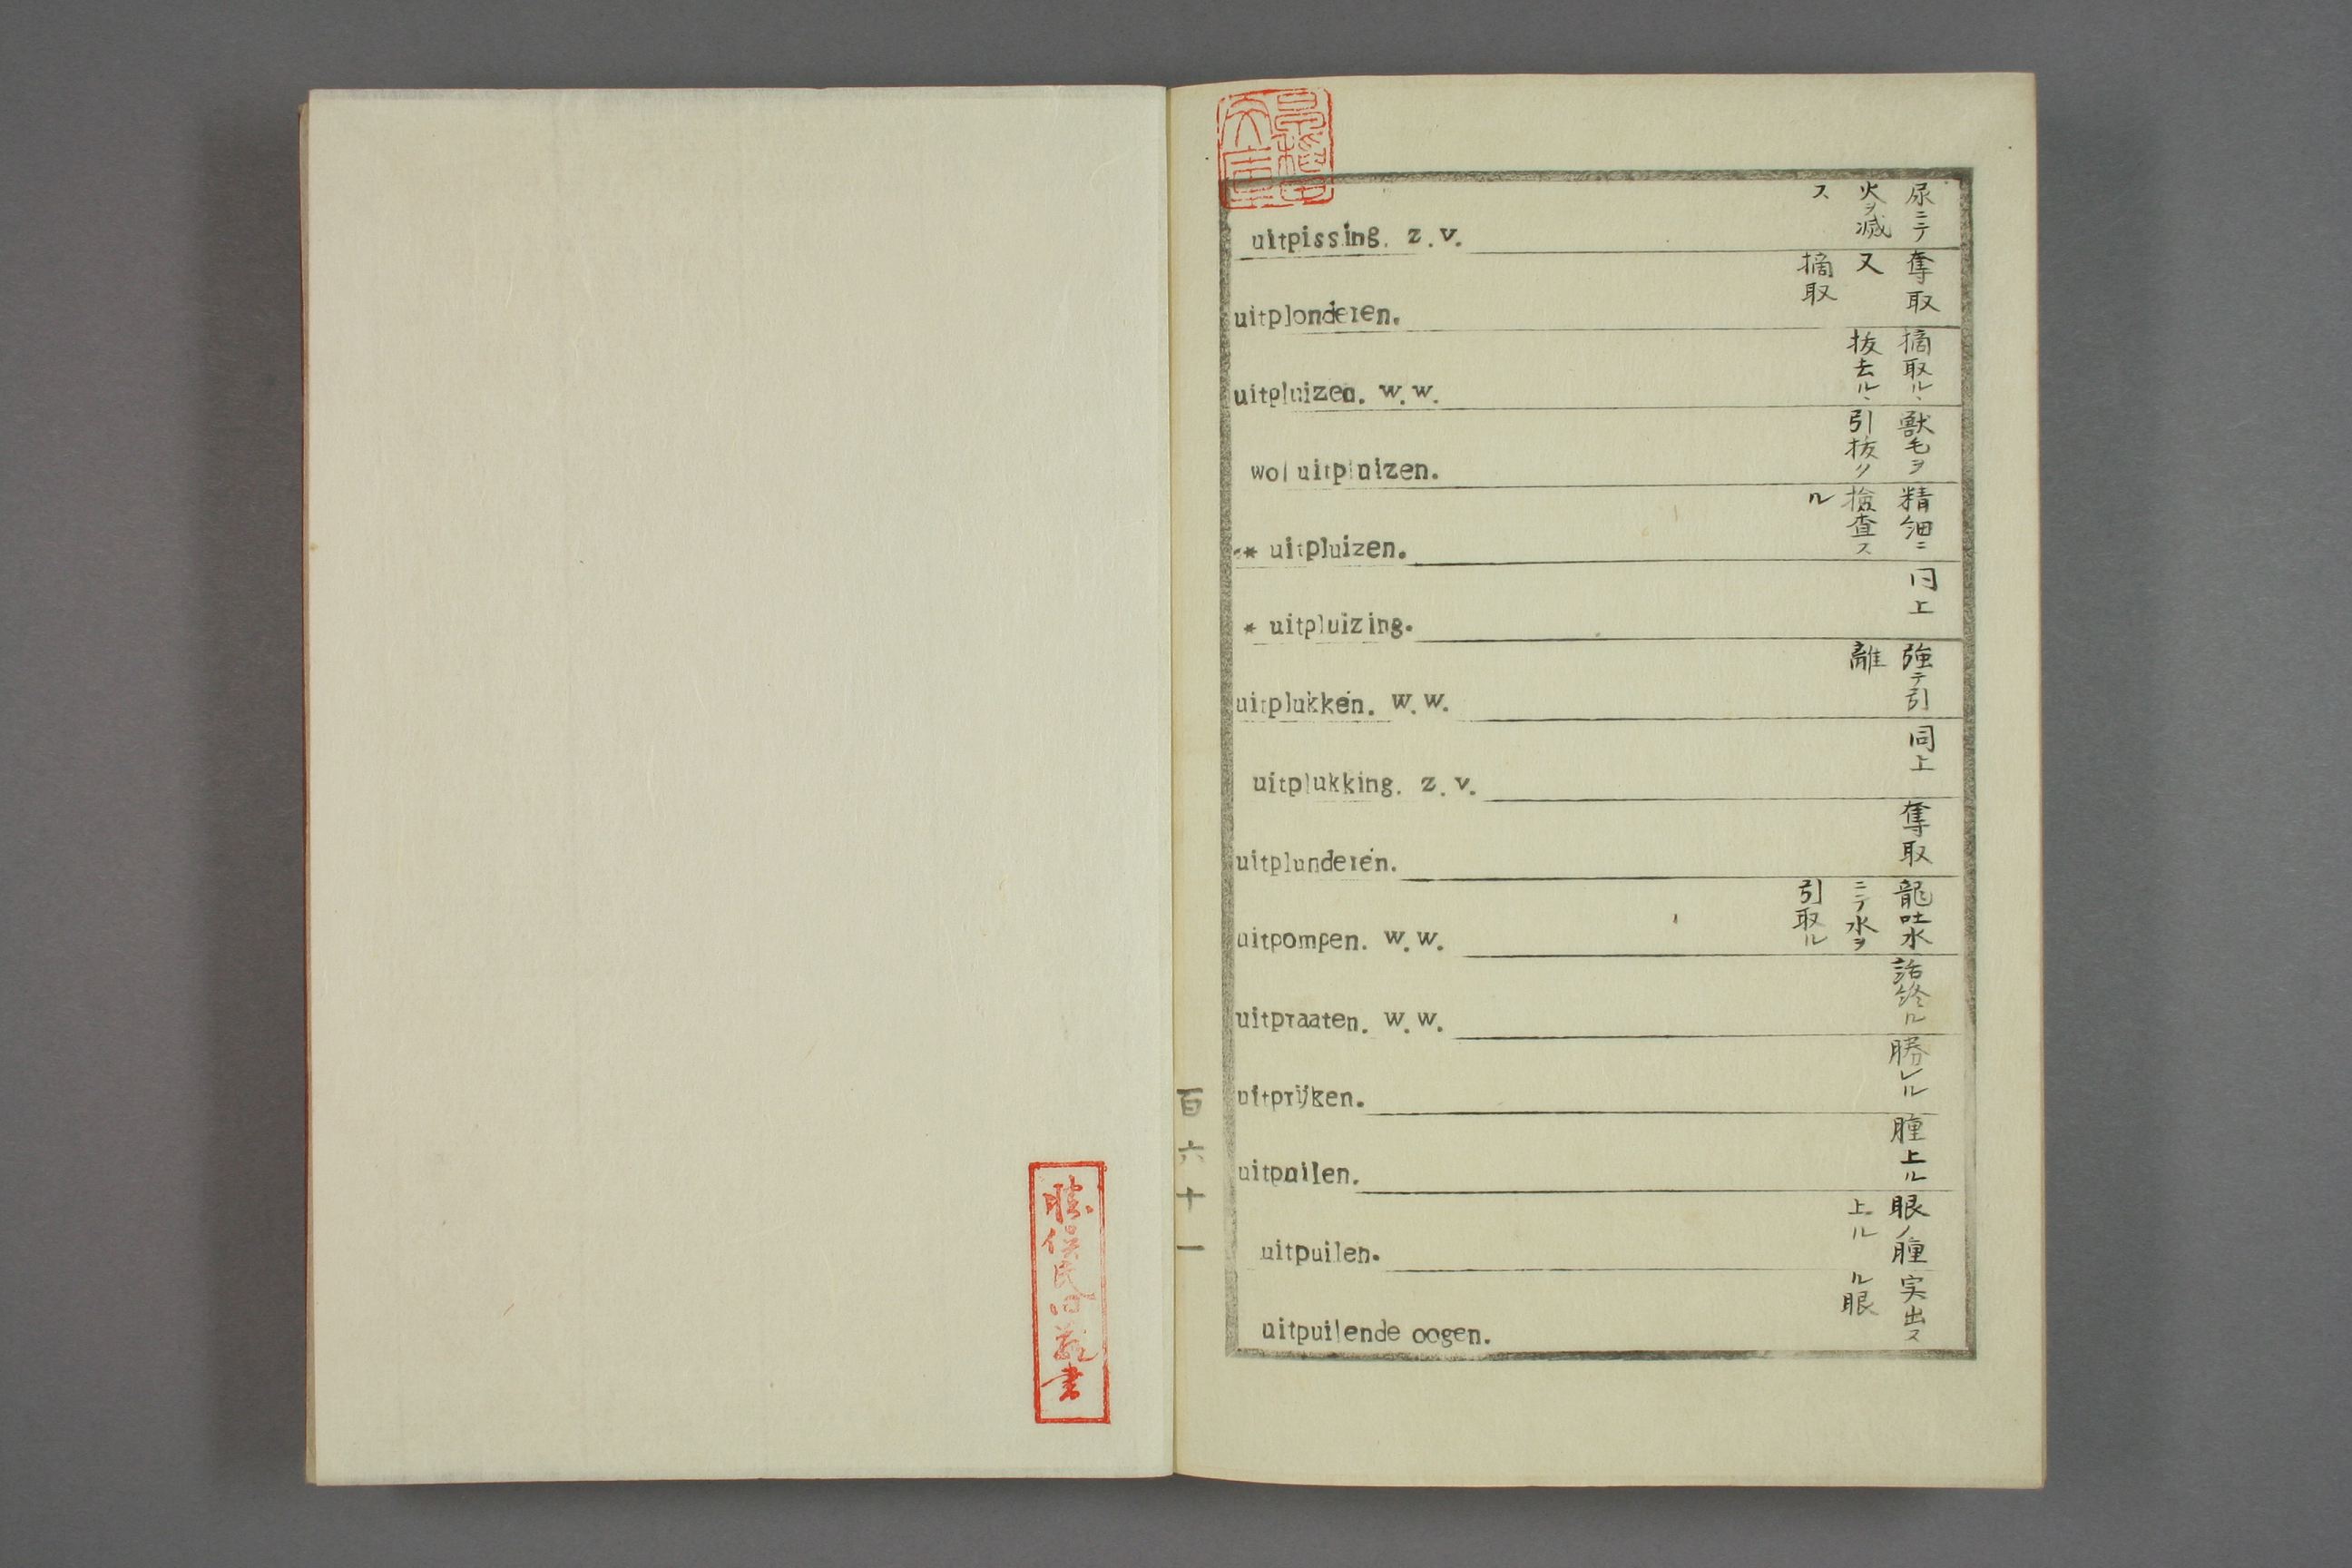 uitpissing. z.v.
尿ニテ
火ヲ滅
ス
uitplonderen.
奪取
又
摘取
uitpluizen. w.w.
摘取ル、
抜去ル、
wol uitpluizen.
獣毛ヲ
引抜ク
** uitpluizen.
精細ニ
撿査ス
ル
* uitpluizing.
同上
uitplukken. w.w.
強テ引
離
uitplukking. z.v.
同上
uitplunderen.
奪取
uitpompen. w.w.
龍吐水
ニテ水ヲ
引取ル
uitpraaten. w.w.
話終ル
uitprijken.
勝レル
uitpuilen.
腫上ル
uitpuilen.
眼ノ腫
上ル
uitpuilende oogen.
突出ス
ル眼
百六十一